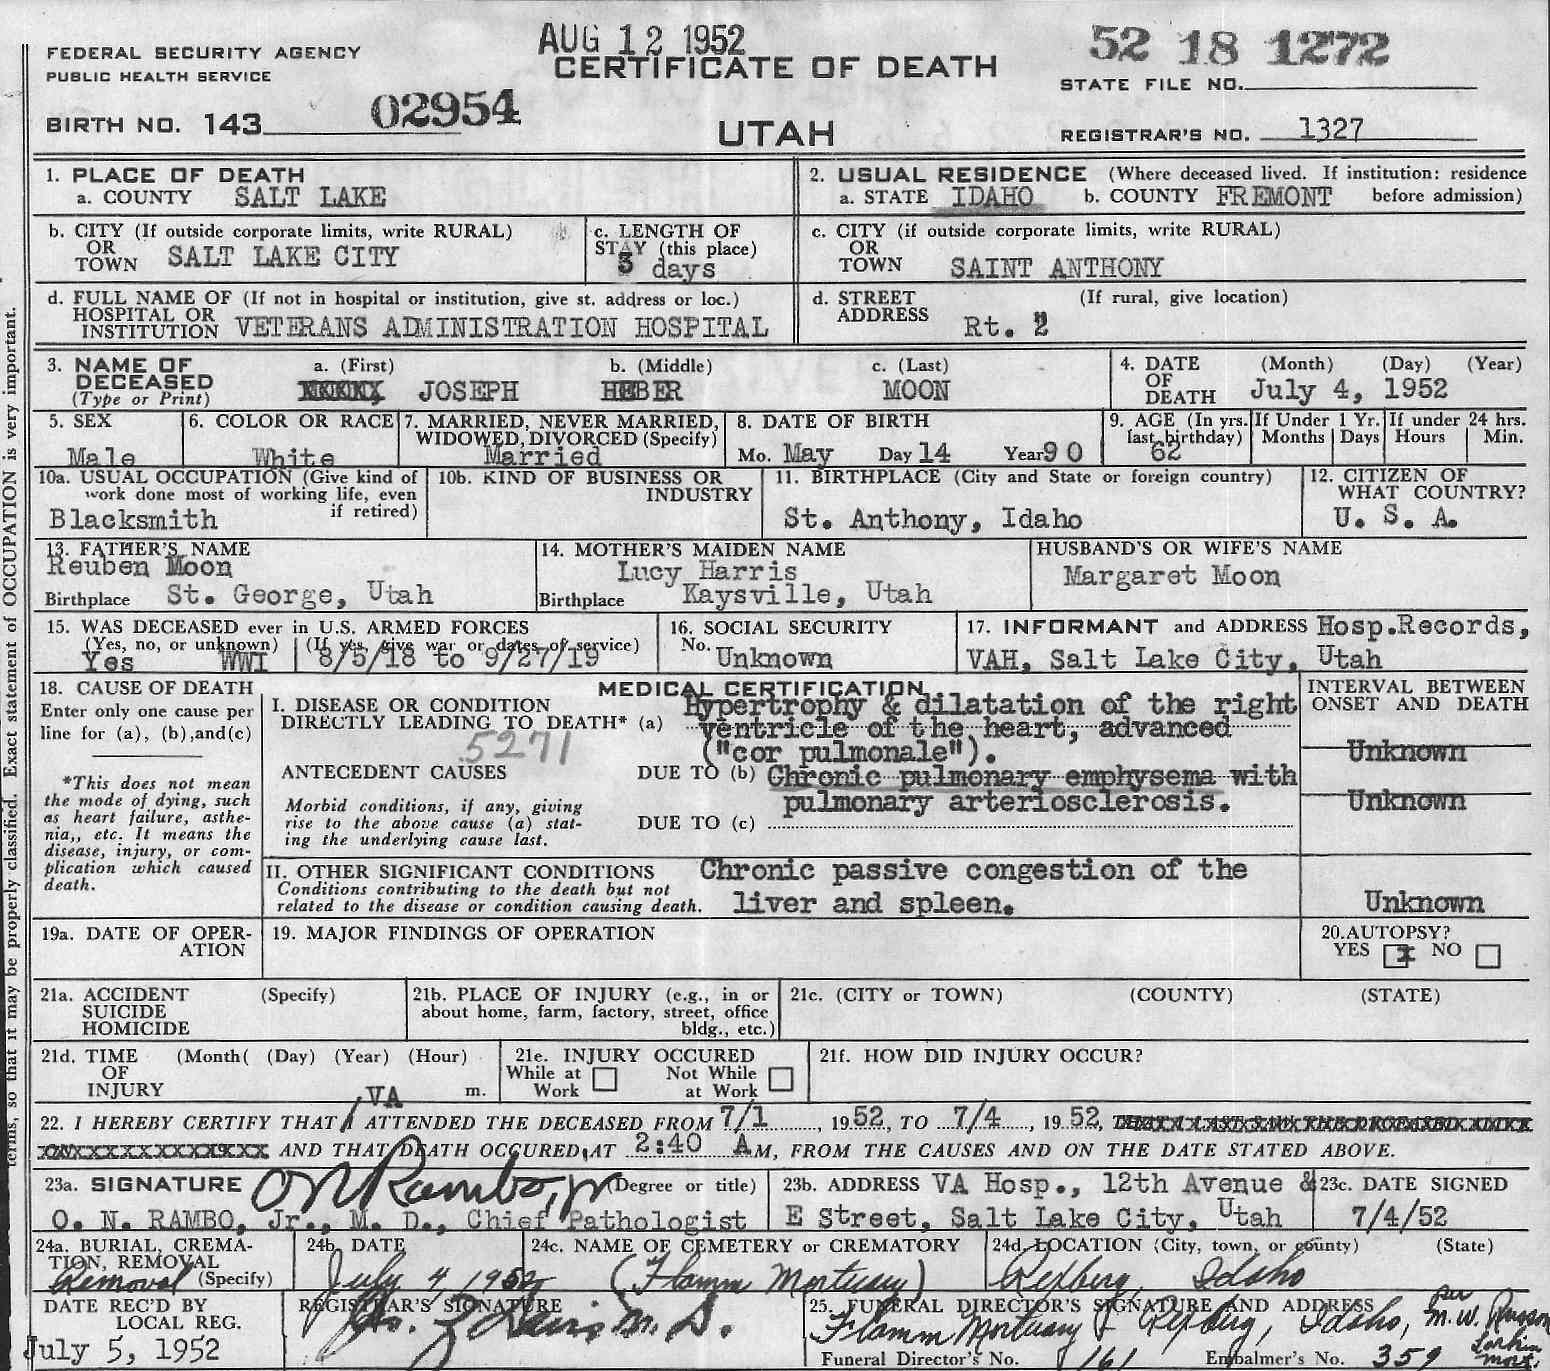 AUG 12 1952
52 18 1272
FEDERAL SECURITY AGENCY
PUBLIC HEALTH SERVICE
CERTIFICATE OF DEATH
STATE FILE NO.
BIRTH NO. 143 02954
UTAH
REGISTRAR'S NO. 1327
terms, so that it may be properly classified. Exact statement of OCCUPATION is very important.
1. PLACE OF DEATH
a. COUNTY SALT LAKE
2. USUAL RESIDENCE (Where deceased lived. If institution: residence
a. STATE IDAHO b. COUNTY FREMONT before admission)
b. CITY (If outside corporate limits, write RURAL)
OR
TOWN SALT LAKE CITY
c. LENGTH OF
STAY (this place)
3 days
c. CITY (if outside corporate limits, write RURAL)
OR
TOWN SAINT ANTHONY
d. FULL NAME OF (If not in hospital or institution, give st. address or loc.)
HOSPITAL OR
INSTITUTION VETERANS ADMINISTRATION HOSPITAL
d. STREET (If rural, give location)
ADDRESS Rt. 2
3. NAME OF a. (First) b. (Middle) c. (Last)
DECEASED JOSEPH HEBER MOON
(Type or Print)
4. DATE (Month) (Day) (Year)
OF
DEATH July 4, 1952
5. SEX
Male
6. COLOR OR RACE
White
7. MARRIED, NEVER MARRIED,
WIDOWED, DIVORCED (Specify)
Married
8. DATE OF BIRTH
Mo. May Day 14 Year 90
9. AGE (In yrs.
last birthday)
62
If Under 1 Yr.
Months Days
If under 24 hrs.
Hours Min.
10a. USUAL OCCUPATION (Give kind of
work done most of working life, even
if retired)
Blacksmith
10b. KIND OF BUSINESS OR
INDUSTRY
11. BIRTHPLACE (City and State or foreign country)
St. Anthony, Idaho
12. CITIZEN OF
WHAT COUNTRY?
U. S. A.
13. FATHER'S NAME
Reuben Moon
Birthplace St. George, Utah
14. MOTHER'S MAIDEN NAME
Lucy Harris
Birthplace Kaysville, Utah
HUSBAND'S OR WIFE'S NAME
Margaret Moon
15. WAS DECEASED ever in U.S. ARMED FORCES
(Yes, no, or unknown) (If yes, give war or dates of service)
Yes WWI 8/5/18 to 9/27/19
16. SOCIAL SECURITY
No. Unknown
17. INFORMANT and ADDRESS Hosp.Records,
VAH, Salt Lake City, Utah
18. CAUSE OF DEATH
Enter only one cause per
line for (a), (b),and(c)
*This does not mean
the mode of dying, such
as heart failure, asthe-
nia,, etc. It means the
disease, injury, or com-
plication which caused
death.
MEDICAL CERTIFICATION
I. DISEASE OR CONDITION
DIRECTLY LEADING TO DEATH* (a) Hypertrophy & dilatation of the right
ventricle of the heart, advanced
5271
("cor pulmonale").
ANTECEDENT CAUSES DUE TO (b) Chronic pulmonary emphysema with
pulmonary arteriosclerosis.
Morbid conditions, if any, giving
rise to the above cause (a) stat-
ing the underlying cause last.
DUE TO (c)
INTERVAL BETWEEN
ONSET AND DEATH
Unknown
Unknown
II. OTHER SIGNIFICANT CONDITIONS Chronic passive congestion of the
Conditions contributing to the death but not
related to the disease or condition causing death. liver and spleen.
Unknown
19a. DATE OF OPER-
ATION
19. MAJOR FINDINGS OF OPERATION
20.AUTOPSY?
YES X NO
21a. ACCIDENT (Specify)
SUICIDE
HOMICIDE
21b. PLACE OF INJURY (e.g., in or
about home, farm, factory, street, office
bldg., etc.)
21c. (CITY or TOWN) (COUNTY) (STATE)
21d. TIME (Month( (Day) (Year) (Hour)
OF
INJURY m.
21e. INJURY OCCURED
While at Not While
Work at Work
21f. HOW DID INJURY OCCUR?
VA
22. I HEREBY CERTIFY THAT I ATTENDED THE DECEASED FROM 7/1, 1952, TO 7/4, 1952,
AND THAT DEATH OCCURED, AT 2:40 AM, FROM THE CAUSES AND ON THE DATE STATED ABOVE.
23a. SIGNATURE O N Rambo, Jr (Degree or title)
O. N. RAMBO, Jr., M. D., Chief Pathologist
23b. ADDRESS VA Hosp., 12th Avenue &
E Street, Salt Lake City, Utah
23c. DATE SIGNED
7/4/52
24a. BURIAL, CREMA-
TION, REMOVAL
Removal (Specify)
24b. DATE
July 4, 1952
24c. NAME OF CEMETERY or CREMATORY
(Flamm Mortuary)
24d. LOCATION (City, town, or county) (State)
Rexberg, Idaho
DATE REC'D BY
LOCAL REG.
July 5, 1952
REGISTRAR'S SIGNATURE
M. D.
25. FUNERAL DIRECTOR'S SIGNATURE AND ADDRESS
Flamm Mortuary Rexberg, Idaho, per M. W.
Larkin
Mort.
Funeral Director's No. 161 Embalmer's No. 359